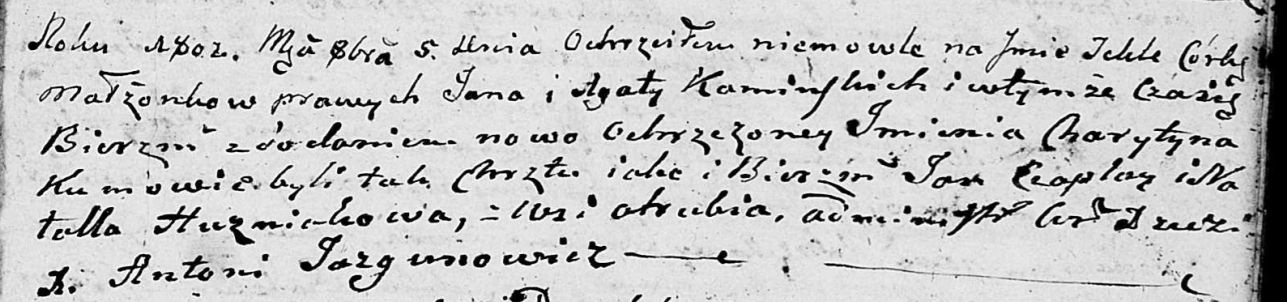 Roku 1802. Mca 8bra 5. dnia Ochrzciłem niemowle na Jmie Tekle Córkę
Małżonkow prawych Jana i Agaty Kaminskich i w tymże Czasie
Bierzm z dodaniem nowo Ochrzczoney Jmienia Charytyna
Kumowie byli tak Chrztu iako i Bierzm Jan Czaplay i Na
talla Huzniakowa, z Wsi otrubia. administr Cer
X. Antoni Jazgunowicz